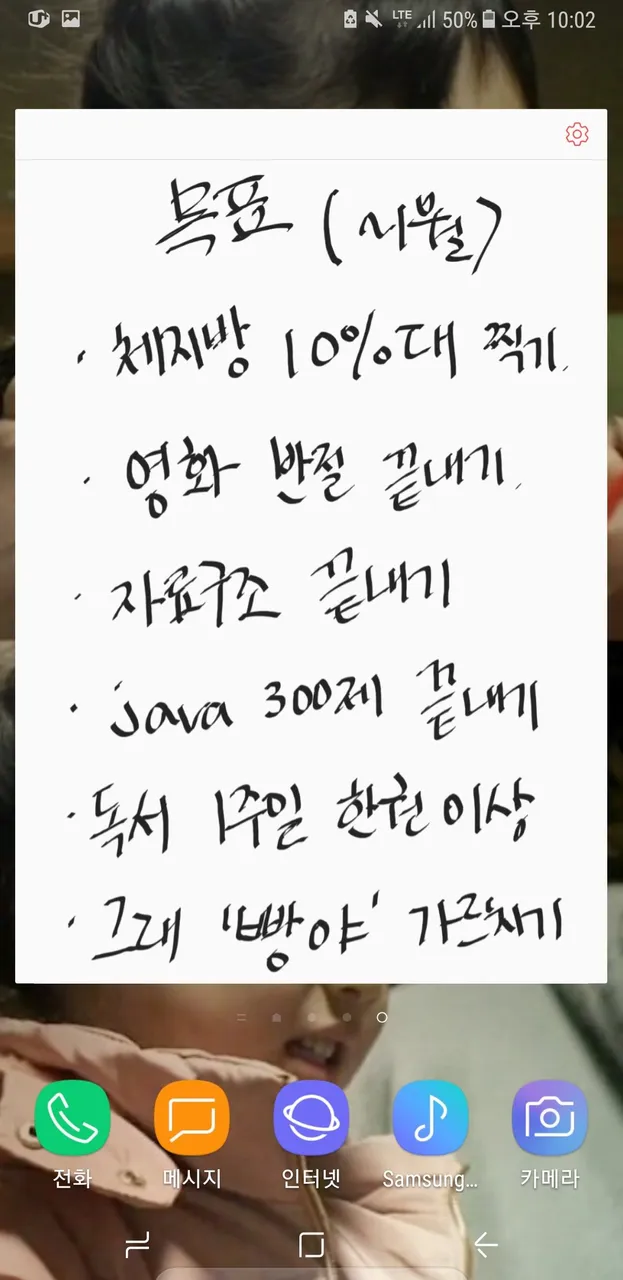 LTE 50% 오후 10:02
목표 (시월)
· 체지방 10%대 찍기.
· 영화 반절 끝내기.
· 자료구조 끝내기
· java 300제 끝내기
· 독서 1주일 한권 이상
· 그래 '빵야' 가르치기
전화 메시지 인터넷 Samsung... 카메라